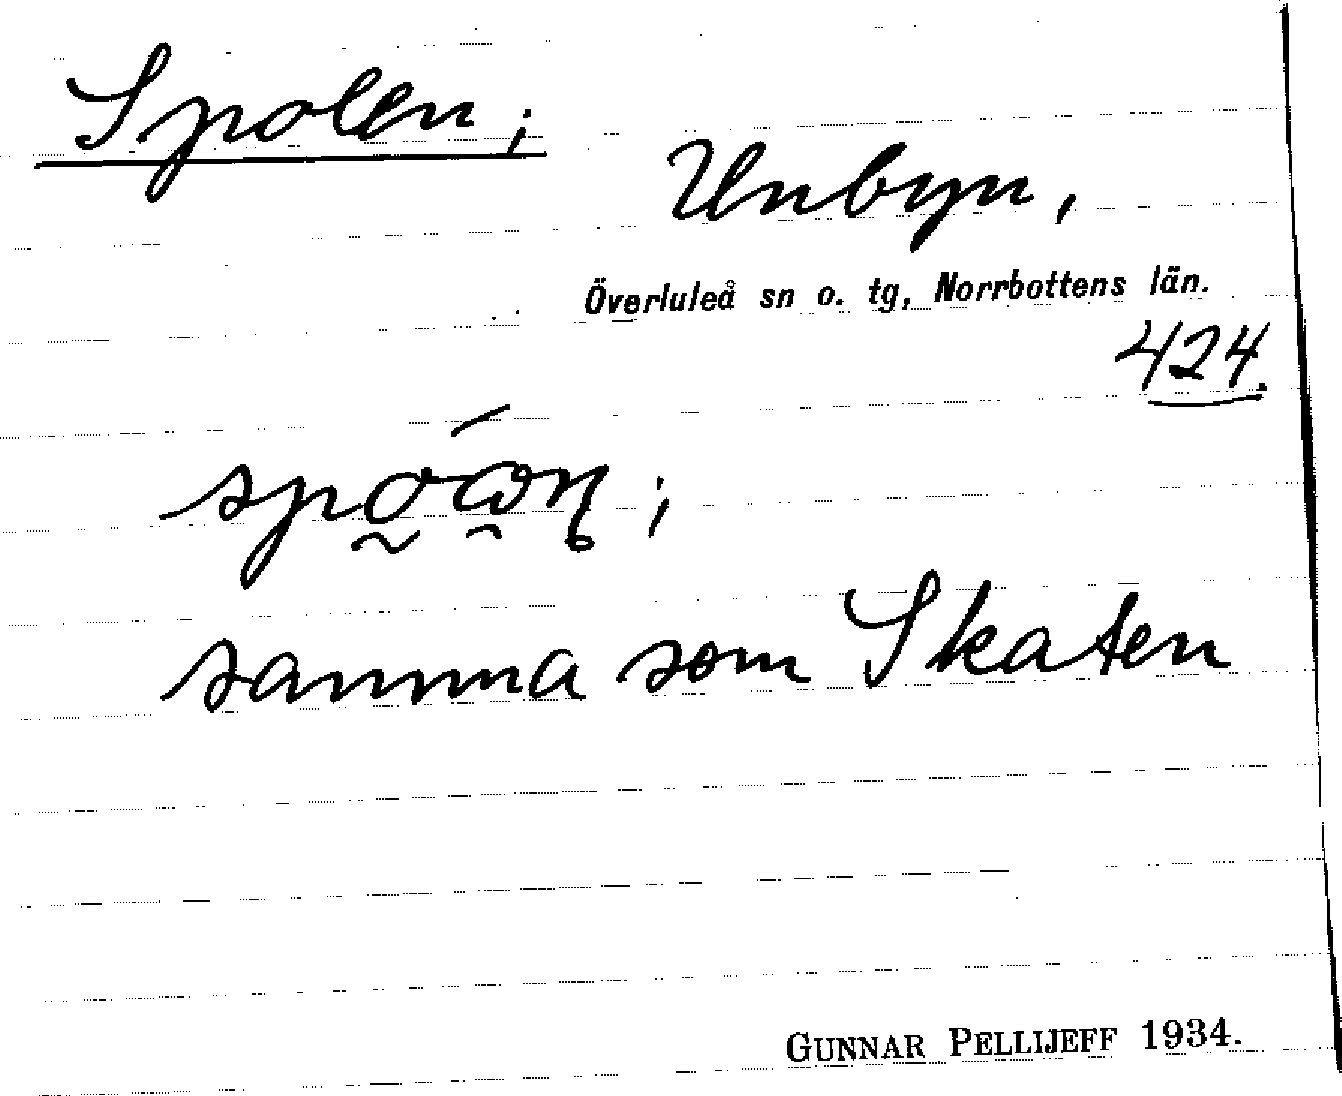 Spolen;
Unbyn,
Överluleå sn o. tg, Norrbottens län.
424.
samma som Skaten
GUNNAR PELLIJEFF 1934.